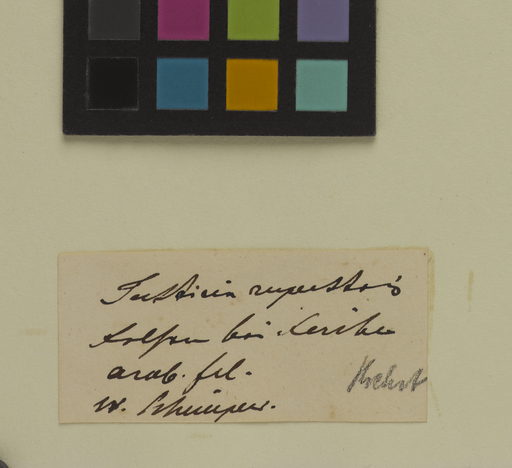 Justicia rupestris
Felsen bei Keribe
arab. fel.
W. Schimper.
Hochst